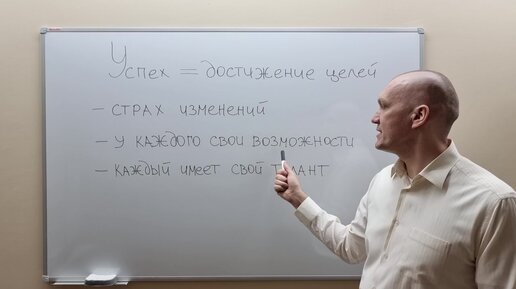 Успех = достижение целей
- СТРАХ ИЗМЕНЕНИЙ
- У КАЖДОГО СВОИ ВОЗМОЖНОСТИ
- КАЖДЫЙ ИМЕЕТ СВОЙ ТАЛАНТ